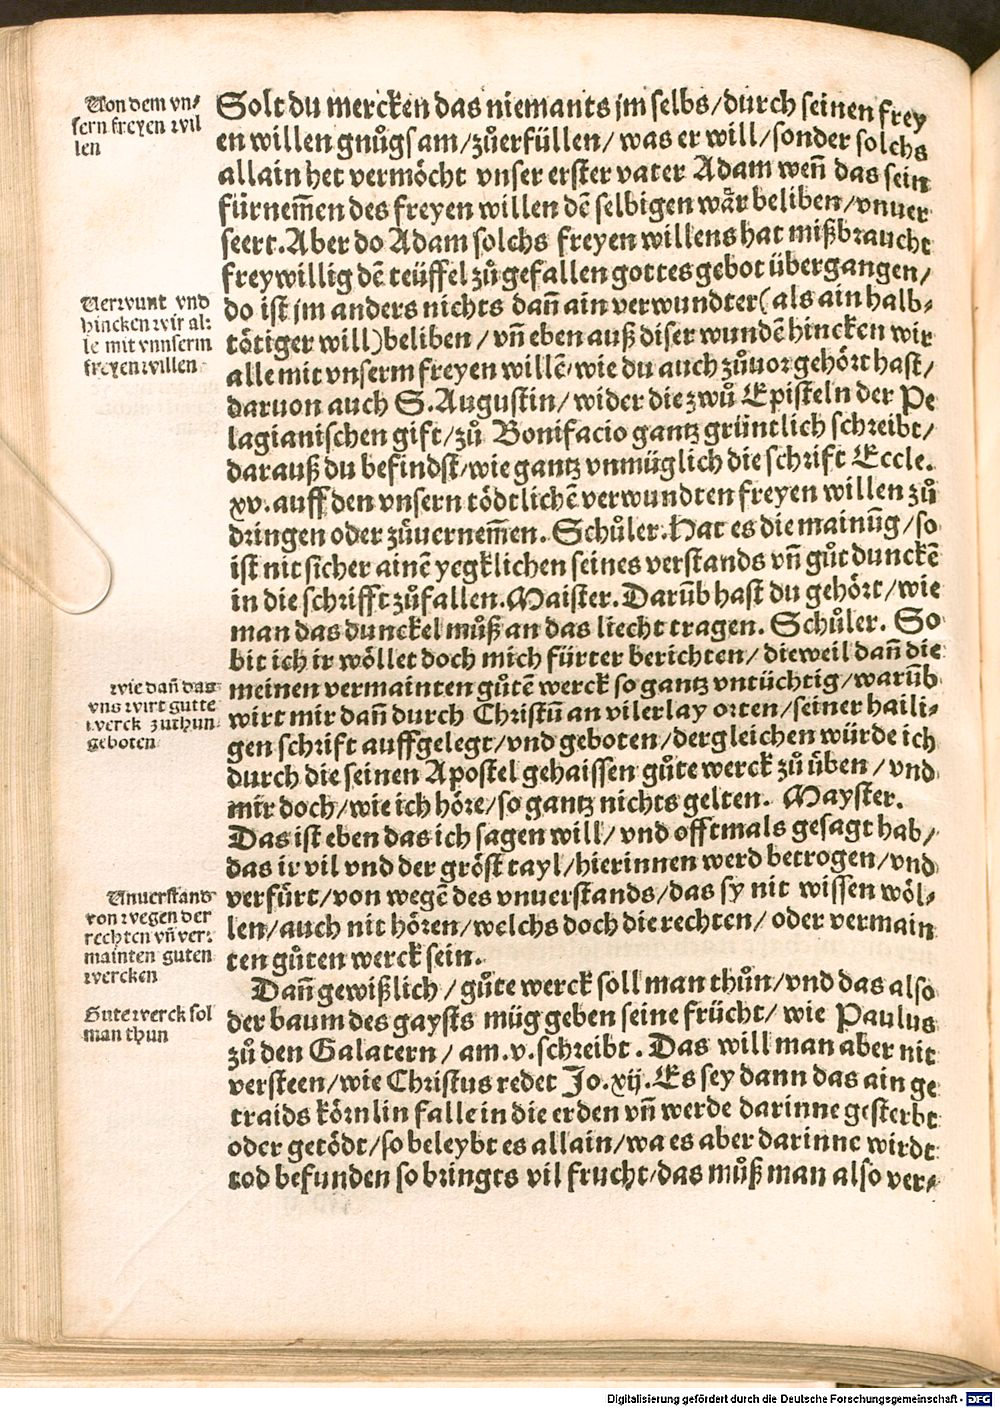 Von dem vn⸗
sern freyen wil
len
Solt du mercken das niemants jm selbs/durch seinen frey
en willen gnůgsam/zůerfüllen/ was er will/sonder solchs
allain het vermöcht vnser erster vater Adam weñ das sein
fürnem̃en des freyen willen dē selbigen wår beliben/vnuer
seert. Aber do Adam solchs freyen willens hat mißbraucht
freywillig dē teüffel zůgefallen gottes gebot übergangen/
Verwunt vnd
hincken wir al⸗
le mit vnnserm
freyen willen
do ist jm anders nichts dañ ain verwundter(als ain halb⸗
tötiger will)beliben/ vñ eben auß diser wundē hincken wir
alle mit vnserm freyen willē/wie du auch zůuor gehört hast/
daruon auch S. Augustin/ wider die zwů Episteln der Pe
lagianischen gift/zů Bonifacio gantz grüntlich schreibt/
darauß du befindst/wie gantz vnmüglich die schrift Eccle.
xv. auff den vnsern tödtlichē verwundten freyen willen zů
dringen oder zůuernem̃en. Schůler. Hat es die mainũg/so
ist nit sicher ainē yegklichen seines verstands vñ gůt dunckē
in die schrifft zůfallen. Maister. Darũb hast du gehört/wie
man das dunckel můß an das liecht tragen. Schůler. So
bit ich ir wöllet doch mich fürter berichten/ dieweil dañ die
wie dañ das
vns wirt gutte
werck zuthun
geboten
meinen vermainten gůtē werck so gantz vntüchtig/warũb
wirt mir dañ durch Christũ an vilerlay orten/seiner haili⸗
gen schrift auffgelegt/vnd geboten/dergleichen würde ich
durch die seinen Apostel gehaissen gůte werck zů üben/vnd
mir doch/wie ich höre/so gantz nichts gelten. Mayster.
Das ist eben das ich sagen will/ vnd offtmals gesagt hab/
das ir vil vnd der gröst tayl/hierinnen werd betrogen/vnd
Vnuerstand
von wegen der
rechten vñ ver⸗
mainten guten
wercken
verfürt/von wegē des vnuerstands/das sy nit wissen wöl⸗
len/auch nit hören/welchs doch die rechten/ oder vermain
ten gůten werck sein.
Gute werck sol
man thun
Dañ gewißlich/ gůte werck soll man thůn/vnd das also
der baum des gaysts müg geben seine frücht/ wie Paulus
zů den Galatern/ am. v. schreibt. Das will man aber nit
versteen/wie Christus redet Jo. xij. Es sey dann das ain ge
traids körnlin falle in die erden vñ werde darinne gesterbt
oder getödt/so beleybt es allain/wa es aber darinne wirdt
tod befunden so bringts vil frucht/das můß man also ver⸗
Digitalisierung gefördert durch die Deutsche Forschungsgemeinschaft - DFG